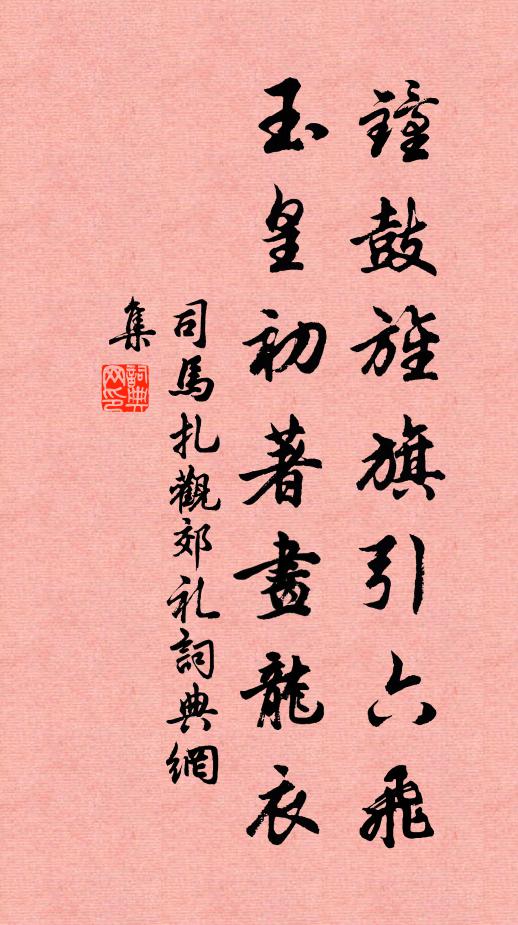 鐘鼓旌旗引六飛
玉皇初著畫龍衣
司馬扎觀郊礼詞典網
集
詞典網印